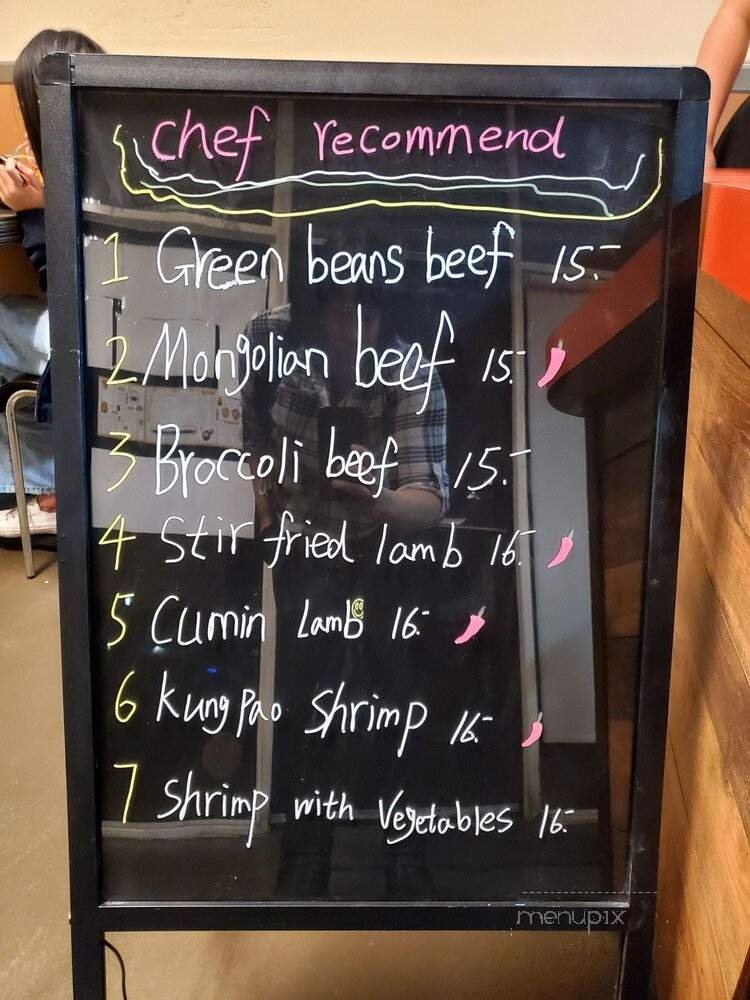 chef recommend
1 Green beans beef 15.-
2 Mongolian beef 15.-
3 Broccoli beef 15.-
4 Stir fried lamb 16.-
5 Cumin Lamb 16.-
6 Kung Pao Shrimp 16.-
7 Shrimp with Vegetables 16.-
menupix